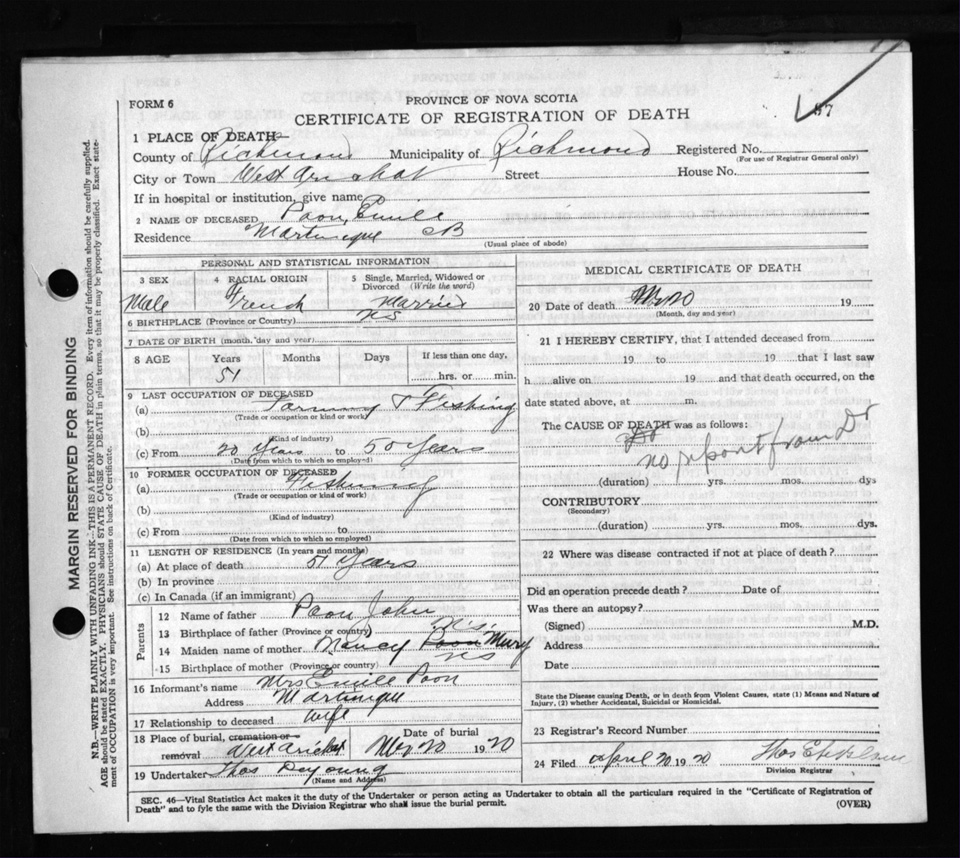 FORM 6
PROVINCE OF NOVA SCOTIA
CERTIFICATE OF REGISTRATION OF DEATH
87
1 PLACE OF DEATH
County of Richmond Municipality of Richmond Registered No.
(For use of Registrar General only)
City or Town West Arichat Street House No.
If in hospital or institution, give name
2 NAME OF DECEASED Poon, Emile
Residence Martinique CB
(Usual place of abode)
PERSONAL AND STATISTICAL INFORMATION
3 SEX 4 RACIAL ORIGIN 5 Single, Married, Widowed or Divorced (Write the word)
Male French Married
6 BIRTHPLACE (Province or Country) NS
7 DATE OF BIRTH (month, day and year)
8 AGE Years Months Days If less than one day,
51 hrs. or min.
9 LAST OCCUPATION OF DECEASED
(a) Farming & Fishing
(Trade or occupation or kind of work)
(b)
(Kind of industry)
(c) From 20 Years to 50 Years
(Date from which to which so employed)
10 FORMER OCCUPATION OF DECEASED
(a) Fishing
(Trade or occupation or kind of work)
(b)
(Kind of industry)
(c) From to
(Date from which to which so employed)
11 LENGTH OF RESIDENCE (In years and months)
(a) At place of death 51 years
(b) In province
(c) In Canada (if an immigrant)
Parents
12 Name of father Poon John
13 Birthplace of father (Province or country) N.S.
14 Maiden name of mother Nancy Poon Mury
15 Birthplace of mother (Province or country) NS
16 Informant's name Mrs Emile Poon
Address Martinique
17 Relationship to deceased wife
18 Place of burial, cremation or removal West Arichat Date of burial 20 1920
19 Undertaker Thos Deyoung
(Name and Address)
MEDICAL CERTIFICATE OF DEATH
20 Date of death 19
(Month, day and year)
21 I HEREBY CERTIFY, that I attended deceased from
19 to 19 that I last saw
h alive on 19 and that death occurred, on the
date stated above, at m.
The CAUSE OF DEATH was as follows:
no report from Dr
(duration) yrs. mos. dys
CONTRIBUTORY
(Secondary)
(duration) yrs. mos. dys.
22 Where was disease contracted if not at place of death?
Did an operation precede death? Date of
Was there an autopsy?
(Signed) M.D.
Address
Date
State the Disease causing Death, or in death from Violent Causes, state (1) Means and Nature of
Injury, (2) whether Accidental, Suicidal or Homicidal.
23 Registrar's Record Number
24 Filed April 20 1920
Division Registrar
SEC. 46—Vital Statistics Act makes it the duty of the Undertaker or person acting as Undertaker to obtain all the particulars required in the "Certificate of Registration of
Death" and to fyle the same with the Division Registrar who shall issue the burial permit.
(OVER)
MARGIN RESERVED FOR BINDING
N.B.—WRITE PLAINLY WITH UNFADING INK—THIS IS A PERMANENT RECORD. Every item of information should be carefully supplied.
AGE should be stated EXACTLY. PHYSICIANS should STATE CAUSE OF DEATH in plain terms, so that it may be properly classified. Exact state-
ment of OCCUPATION is very important. See instructions on back of Certificate.